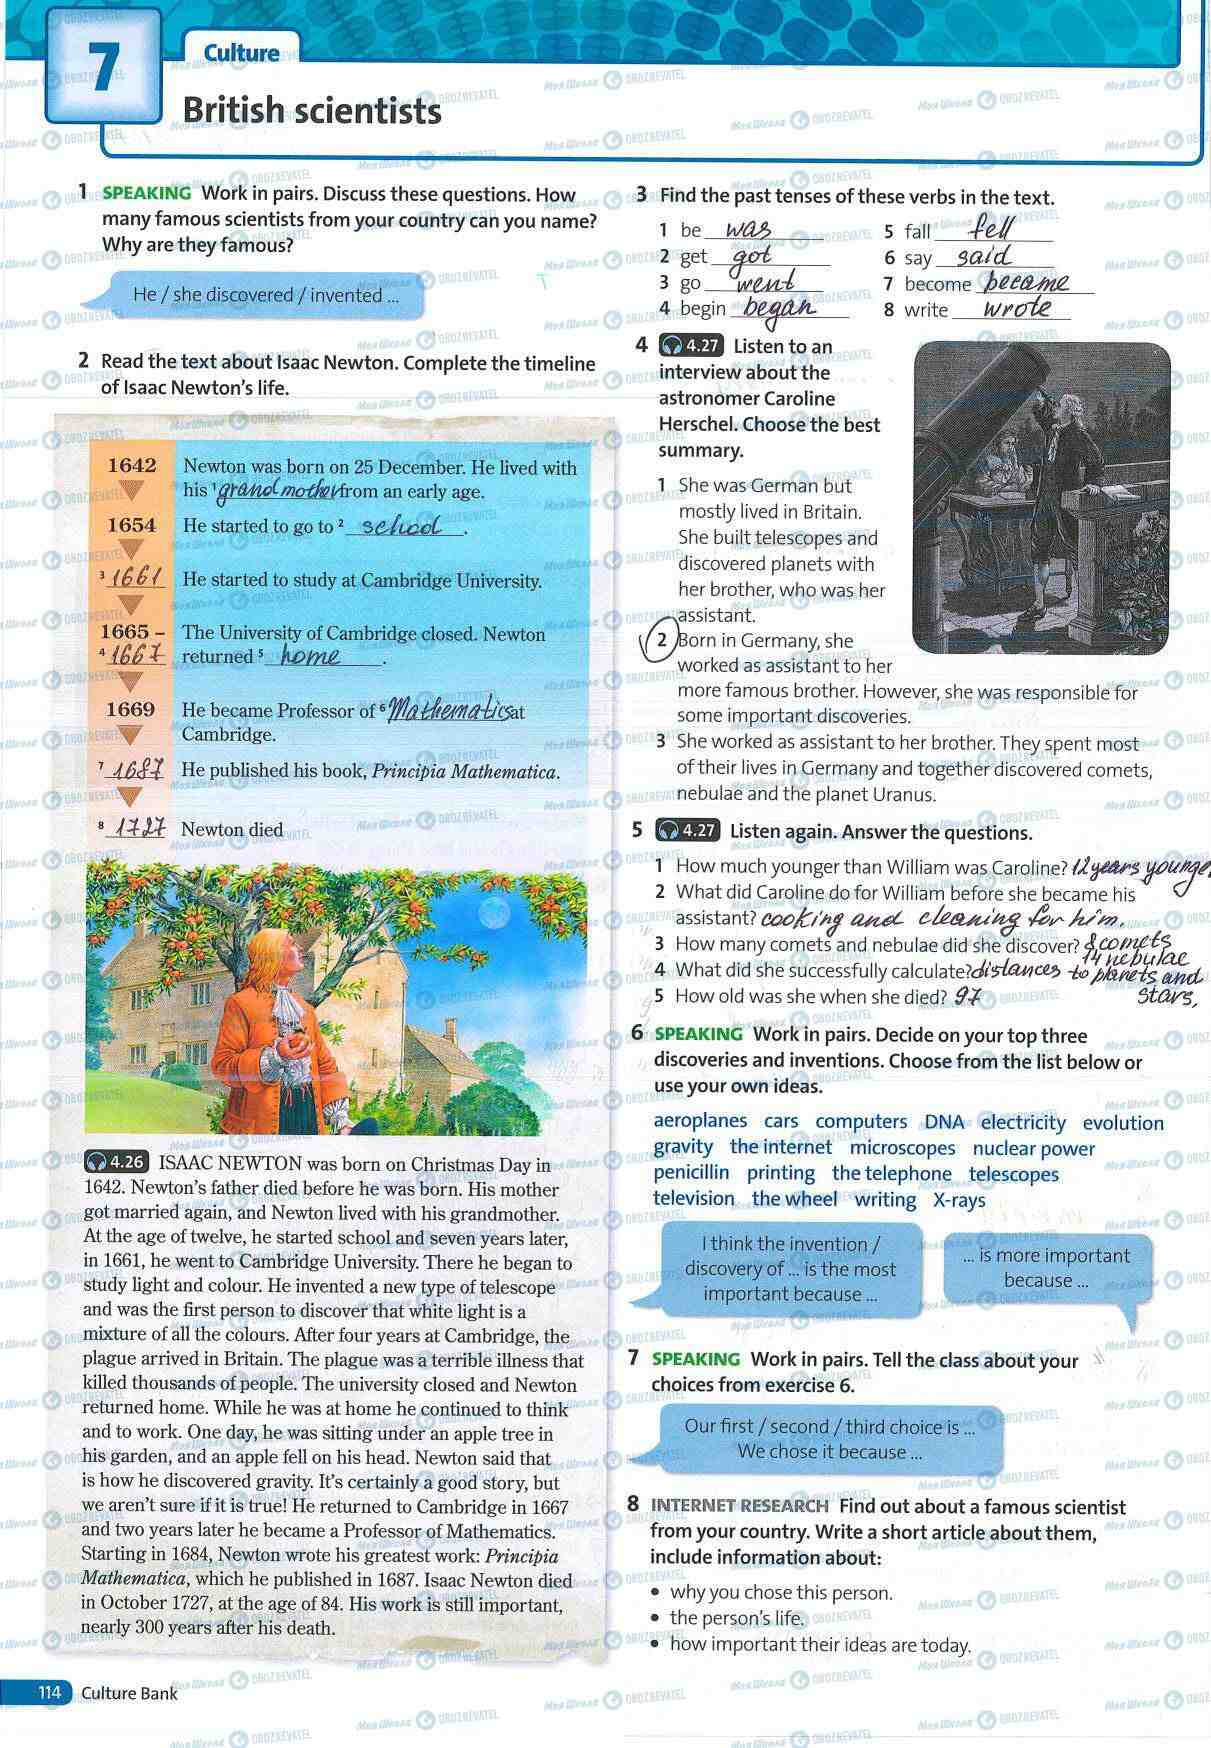 7
Culture
British scientists
1 SPEAKING Work in pairs. Discuss these questions. How
many famous scientists from your country can you name?
Why are they famous?
He / she discovered / invented ...
2 Read the text about Isaac Newton. Complete the timeline
of Isaac Newton's life.
1642 Newton was born on 25 December. He lived with
his ¹ grandmother from an early age.
1654 He started to go to ² school.
³ 1661 He started to study at Cambridge University.
1665 – The University of Cambridge closed. Newton
⁴ 1667 returned ⁵ home.
1669 He became Professor of ⁶ Mathematics at
Cambridge.
⁷ 1687 He published his book, Principia Mathematica.
⁸ 1727 Newton died
4.26 ISAAC NEWTON was born on Christmas Day in
1642. Newton's father died before he was born. His mother
got married again, and Newton lived with his grandmother.
At the age of twelve, he started school and seven years later,
in 1661, he went to Cambridge University. There he began to
study light and colour. He invented a new type of telescope
and was the first person to discover that white light is a
mixture of all the colours. After four years at Cambridge, the
plague arrived in Britain. The plague was a terrible illness that
killed thousands of people. The university closed and Newton
returned home. While he was at home he continued to think
and to work. One day, he was sitting under an apple tree in
his garden, and an apple fell on his head. Newton said that
is how he discovered gravity. It's certainly a good story, but
we aren't sure if it is true! He returned to Cambridge in 1667
and two years later he became a Professor of Mathematics.
Starting in 1684, Newton wrote his greatest work: Principia
Mathematica, which he published in 1687. Isaac Newton died
in October 1727, at the age of 84. His work is still important,
nearly 300 years after his death.
114 Culture Bank
3 Find the past tenses of these verbs in the text.
1 be was 5 fall fell
2 get got 6 say said
3 go went 7 become became
4 begin began 8 write wrote
4 4.27 Listen to an
interview about the
astronomer Caroline
Herschel. Choose the best
summary.
1 She was German but
mostly lived in Britain.
She built telescopes and
discovered planets with
her brother, who was her
assistant.
2 Born in Germany, she
worked as assistant to her
more famous brother. However, she was responsible for
some important discoveries.
3 She worked as assistant to her brother. They spent most
of their lives in Germany and together discovered comets,
nebulae and the planet Uranus.
5 4.27 Listen again. Answer the questions.
1 How much younger than William was Caroline? 12 years younger
2 What did Caroline do for William before she became his
assistant? cooking and cleaning for him.
3 How many comets and nebulae did she discover? 8 comets
14 nebulae
4 What did she successfully calculate? distances to planets and
stars.
5 How old was she when she died? 97
6 SPEAKING Work in pairs. Decide on your top three
discoveries and inventions. Choose from the list below or
use your own ideas.
aeroplanes cars computers DNA electricity evolution
gravity the internet microscopes nuclear power
penicillin printing the telephone telescopes
television the wheel writing X-rays
I think the invention /
discovery of ... is the most
important because ...
... is more important
because ...
7 SPEAKING Work in pairs. Tell the class about your
choices from exercise 6.
Our first / second / third choice is ...
We chose it because ...
8 INTERNET RESEARCH Find out about a famous scientist
from your country. Write a short article about them,
include information about:
• why you chose this person.
• the person's life.
• how important their ideas are today.
Моя Школа OBOZREVATEL